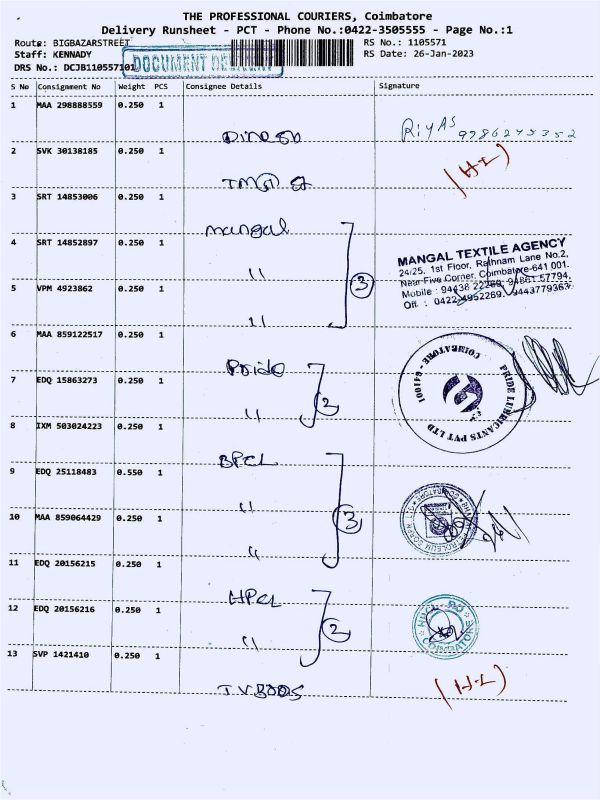 THE PROFESSIONAL COURIERS, Coimbatore
Delivery Runsheet - PCT - Phone No.:0422-3505555 - Page No.:1
Route: BIGBAZARSTREET
RS No.: 1105571
Staff: KENNADY
RS Date: 26-Jan-2023
DRS No.: DCJB110557101
DOCUMENT
S No Consignment No Weight PCS Consignee Details Signature
1 MAA 298888559 0.250 1
Dinesh
RiyAS
2 SVK 30138185 0.250 1
3 SRT 14853006 0.250 1
mangal
4 SRT 14852897 0.250 1
"
3
MANGAL TEXTILE AGENCY
24/25, 1st Floor, Rathnam Lane No.2,
Near Five Corner, Coimbatore-641 001.
Mobile : 94438 22269, 94861 57794,
Off. : 0422-4952269, 9443779363
5 VPM 4923862 0.250 1
"
6 MAA 859122517 0.250 1
Pride
2
COIMBATORE - 641001
PRIDE LUBRICANTS PVT LTD
7 EDQ 15863273 0.250 1
"
8 IXM 503024223 0.250 1
BPCL
3
9 EDQ 25118483 0.550 1
"
10 MAA 859064429 0.250 1
"
11 EDQ 20156215 0.250 1
HPCL
2
COIMBATORE
12 EDQ 20156216 0.250 1
"
13 SVP 1421410 0.250 1